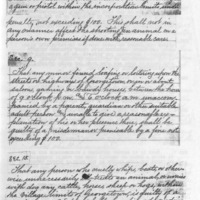 a gun or pistol within the incorporation limits under
penalty not exceeding $100. This shall not in
any manner affect the shooting of an animal on a
person's own premises if done with reasonable care.
Sec. 9.
That any minor found loafing or loitering upon the
streets or highways of Georgetown or about
saloons, gaming or between the hours
of 9 o'clock p.m. and o'clock a.m. unaccom-
panied by a parent, guardian or other suitable
adult person, unable to give a reasonable ex-
planation of his or her presence there, shall be
guilty of a misdemeanor punishable by a fine not
exceeding $100.
Sec. 10.
That any person who cruelly whips, beats or other-
wise mistreats any animal, or
with dog any cattle, horses, sheep or hogs within
the village limits of Georgetown is guilty of a